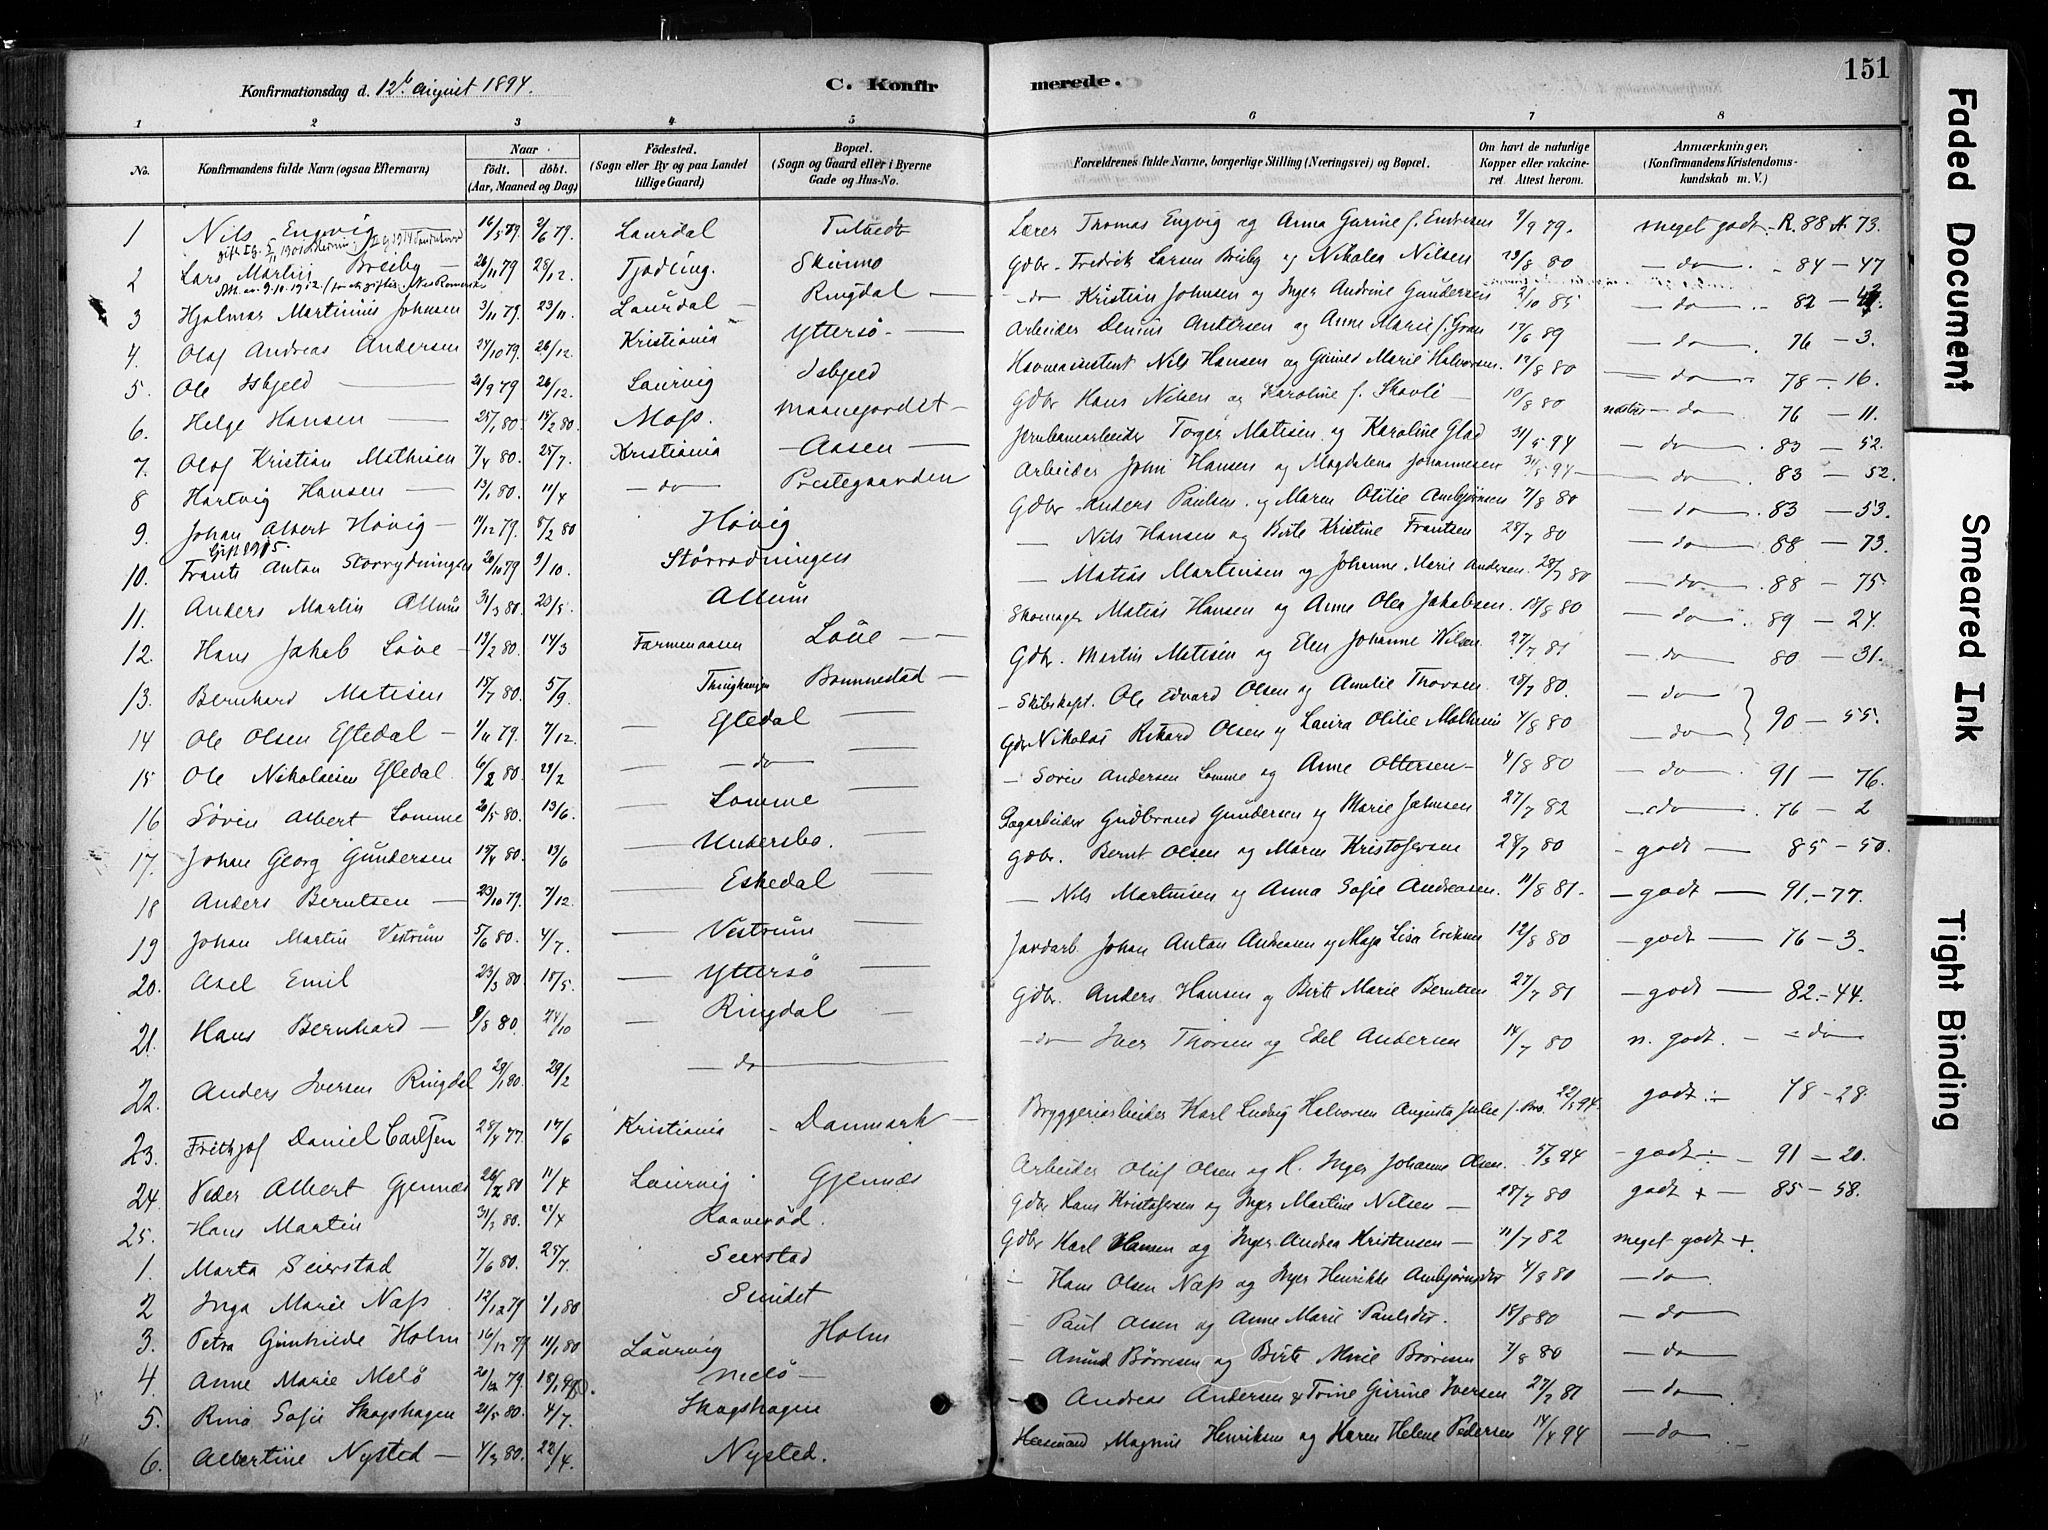 151
Konfirmationsdag d. 12te august 1894.
C. Konfirmerede.
1 2 3 4 5 6 7 8
No. Konfirmandens fulde Navn (ogsaa Efternavn) Naar født. døbt. (Aar, Maaned og Dag) Fødested. (Sogn eller By og paa Landet tillige Gaard) Bopæl. (Sogn og Gaard eller i Byerne Gade og Hus-No. Forældrenes fulde Navne, borgerlige Stilling (Næringsvei) og Bopæl. Om havt de naturlige Kopper eller vakcineret. Attest herom. Anmærkninger. (Konfirmandens Kristendomskundskab m. V.)
1 Nils Engvig 16/5 79. 2/6 79. Laurdal Lærer Thomas Engvig og Anna Gurine f. Endresen 9/9 79. meget godt - R. 88 N. 73.
2 Lars Martin Breiby 26/11 79 28/12. Tjødling. Skinmo Gdbr. Fredrik Larsen Breiby og Nikolea Nilsen 29/8 80 - do - 84 - 47
3 Hjalmar Martinius Johnsen 3/11 79. 23/11. Laurdal - Ringdal - - do Kristian Johnsen og Inger Andrine Gundersen 2/10 85 - do - 82 -
4. Olaf Andreas Andersen 24/10 79. 26/12. Kristiania Yttersø - Arbeider Denius Andersen og Anne Marie f. Gran 17/6 89 - do - 76 - 3.
5. Ole Isbjeld 26/9 79 26/12. Laurvig Isbjeld Nils Hansen og Marie Halvorsen. 12/8 80 - do - 78 - 16.
6. Helge Hansen 25/1 80. 15/2 80. Moss. Maanejordet - Gdbr Hans Nilsen og Karoline f. Skovli - 10/8 80 næsten - do - 76 - 11.
7. Olaf Kristian Mathisen 7/4 80. 25/7. Kristiania - Aasen - Jernbanearbeider Torger Matisen og Karoline Glad 31/5 94 - do - 83 - 52.
8 Hartvig Hansen - 13/1 80. 11/4 - do - Prestegaarden Arbeider John Hansen og Magdalena Johannesen 31/5 94 - - do - 83 - 52.
9. Johan Albert Høvig - 14/12 79. 8/2 80 Høvig Gdbr Anders Paulsen og Maren Otilie Ambjørnsen 7/8 80 - do - 83 - 53.
Gift 1915.
10. Frants Anton Storrydningen 20/10 79 9/10. Størrødningen - Nils Hansen og Birte Kristine Frantsen 28/7 80 - do - 88 - 73.
11. Anders Martin Allum 31/3 80. 23/5. Allum - Matias Martinisen og Johanne Marie Andersen. 28/7 80 - do - 88 - 75.
12. Hans Jakob Løve - 19/2 80. 14/3 Farmenaasen Løve - - Skomager Matias Hansen og Anne Olea Jakobsen. 18/8 80 - do - 89 - 24.
13. Bernhard Matisen 15/7 80. 5/9. Thinghaugen Bommestad - Gdbr. Martin Matisen og Elen Johanne Nilsen. 27/7 81 - do - 80 - 31.
14 Ole Olsen Eftedal - 1/11 79. 7/12. - Eftedal - - Skibskapt. Ole Edvard Olsen og Amelie Thorsen. 28/7 80. - do -
15 Ole Nikolaisen Eftedal. 6/2 80. 29/2 - - do - Gdbr Nikolas Rikard Olsen og Laura Otilie Mathisen 4/8 80 - do - 90 - 55.
16 Søren Albert Lomme 20/5 80. 13/6. - Lomme - - Søren Andersen Lomme og Anne Ottersen - 4/8 80 - do - 91 - 76.
17. Johan Georg Gundersen 15/4 80. 13/6 - Undersbo. - Sagarbeider Gudbrand Gundersen og Marie Jahnsen 27/7 82 - do - 76 - 2
18 Anders Berntsen - 23/10 79. 7/12. - Eskedal - Gdbr. Bernt Olsen og Maren Kristofersen 28/7 80 - godt - 85 - 50.
19 Johan Martin Vestrum 5/6 80. 4/7. - Vestrum - - Nils Martinisen og Anna Sofie Andreasen. 11/8 81. - godt - 91. - 77.
20. Axel Emil 23/3 80 18/5. - Yttersø - Jordarb Johan Anton Andreasen og Maja Lisa Eriksen 12/8 80 - godt - 76 - 3.
21. Hans Bernhard - 9/8 80. 24/10 - Ringdal - Gdbr. Anders Hansen og Birte Marie Berntsen 27/7 81 - godt - 82. - 44.
22. Anders Iversen Ringdal 29/1 80. 29/2 - do - - do - Iver Thorsen og Edel Andersen 14/7 80 n. godt. - - do
23. Frithjof Daniel Carlsen 28/4 77. 17/6 Kristiania - Danmark - Bryggeriarbeider Karl Ludvig Halvorsen Augusta Julie f. Bro. 22/5 94. godt 78 - 28.
24. Peder Albert Gjennæs 26/2 80 11/4 Laurvig. Gjennæs Arbeider Oluf Olsen og H. Inger Johanne Olsen. 5/3 94 - godt - 91 - 20.
25. Hans Martin 31/3 80. Raaverød. Gdbr Hans Kristofersen og Inger Martine Nilsen - 28/7 80 godt + - 85 - 58.
1. Marta Seierstad 7/6 80. 25/7. Seierstad Gdbr Karl Hansen og Inger Andrea Kristensen - 11/7 82 meget godt +.
2 Inga Marie Næss. 12/12 79 1/1 80 Sundet - Hans Olsen Næss og Inger Henrikke Ambjørnsdr 4/8 80 - do -
3. Petra Gunhilde Holm 16/12 79 11/1 80 Holm - Paul Olsen og Anne Marie Paulsdr. 18/8 80 - do -
4 Anne Marie Melø 20/12 79. 18/1 80. Laurvig Melø - - Amund Børresen og Birte Marie Børresen 7/8 80 - do -
5. Rina Sofie Skogshagen 21/5 80. 4/7. Skogshagen - Andreas Andersen & Trine Gurine Iversen 27/7 81 - do -
6. Albertine Nysted - 4/3 80. 22/4. Nysted. Magnus Henriksen og Karen Helene Pedersen 14/4 94 - do -
Faded Document
Smeared Ink
Tight Binding